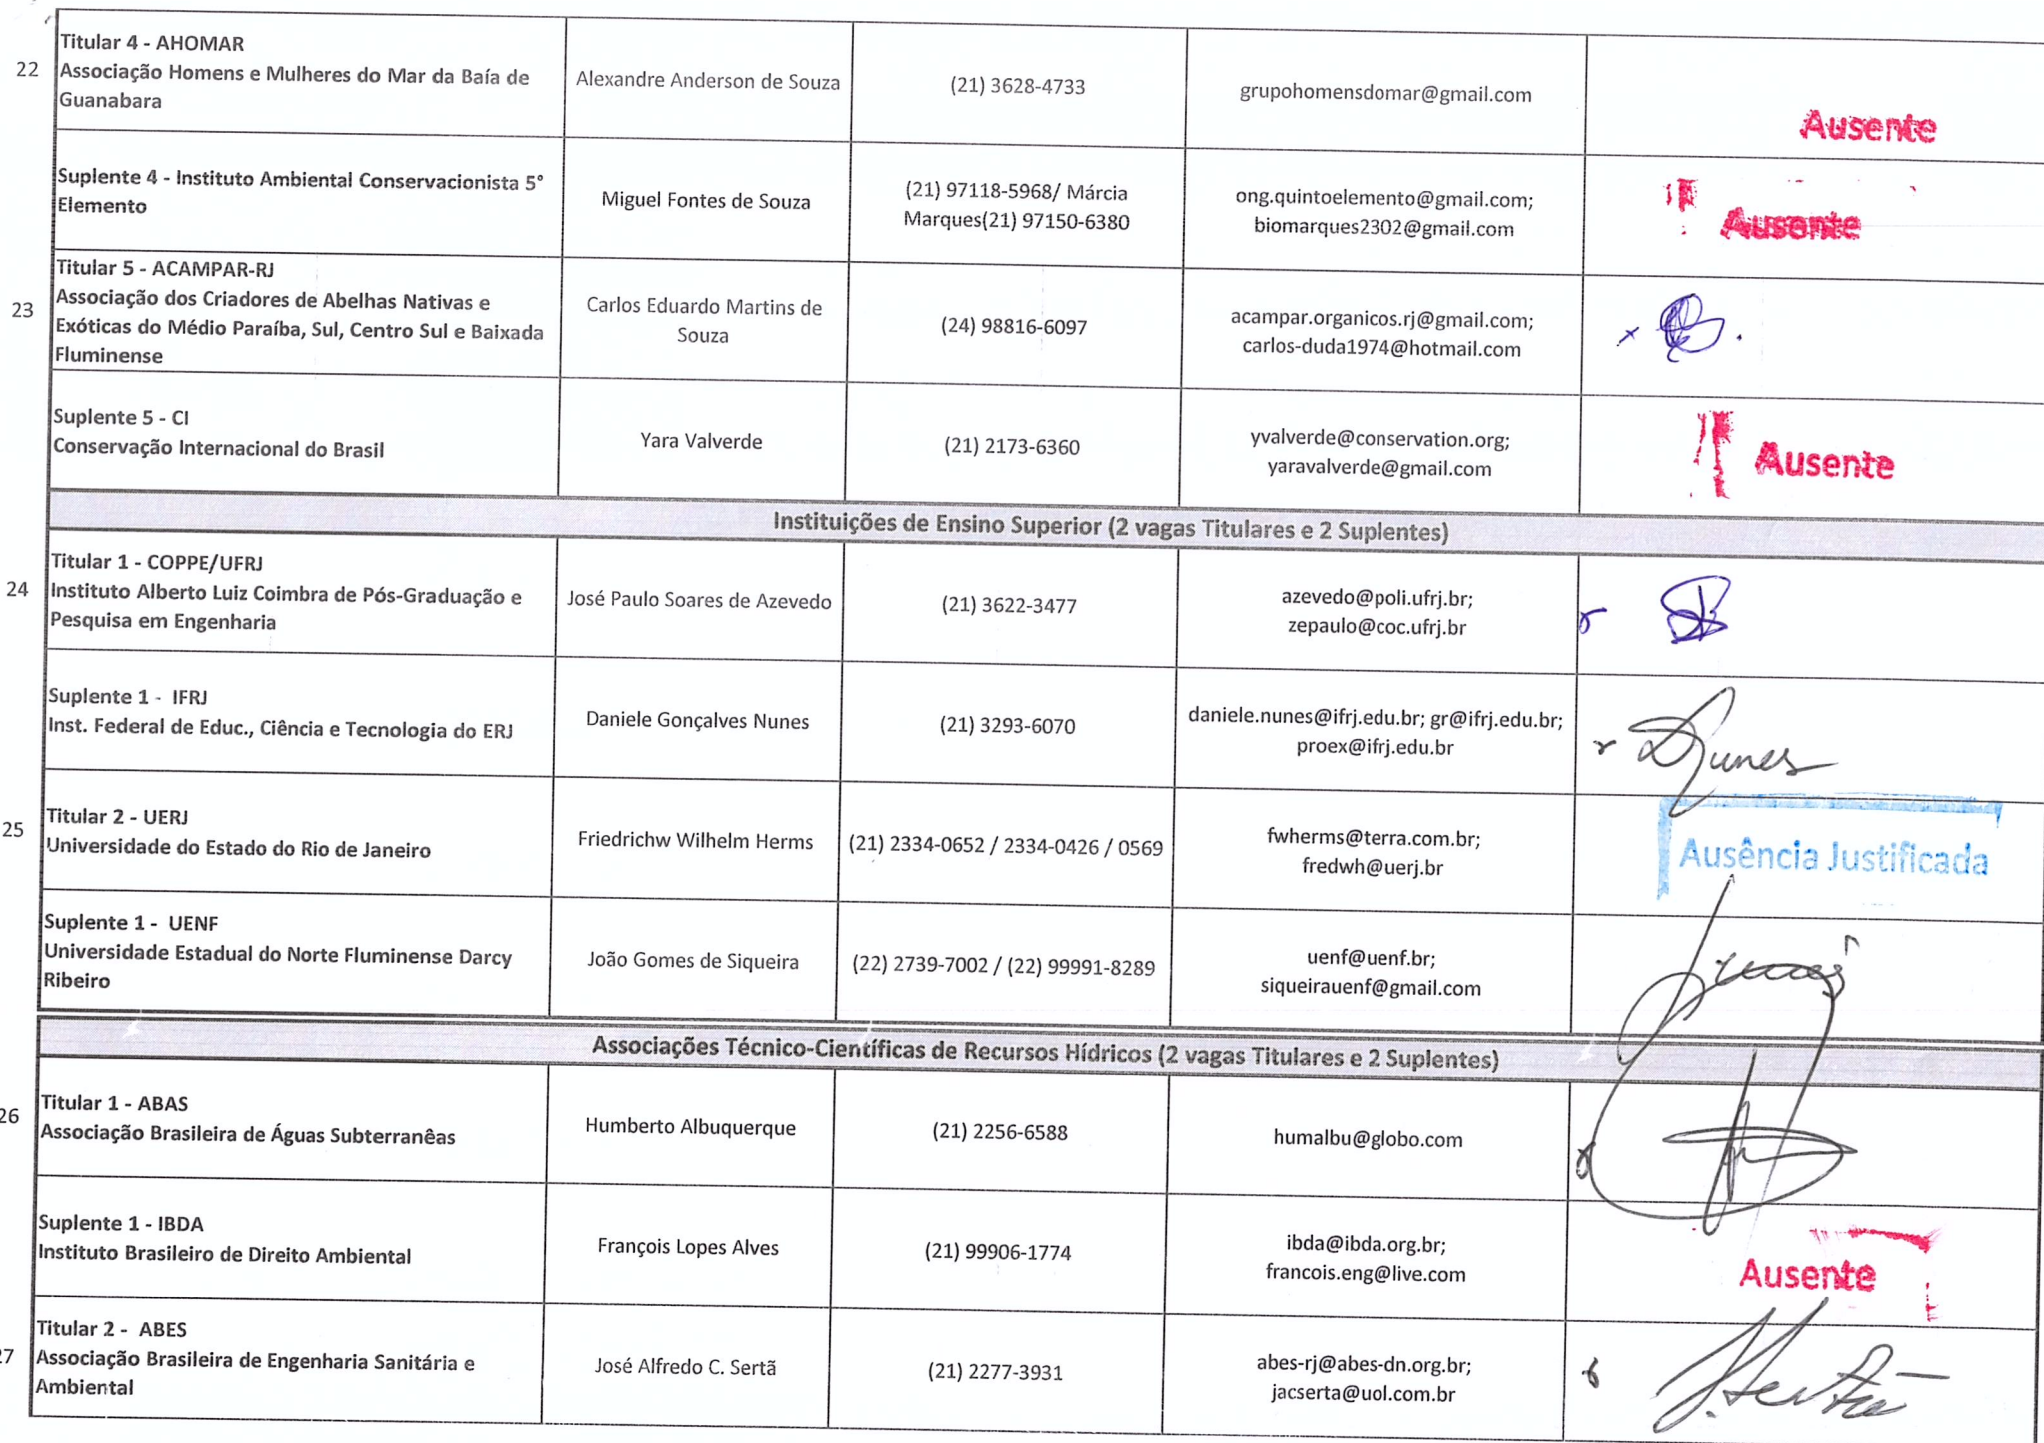 22
Titular 4 - AHOMAR
Associação Homens e Mulheres do Mar da Baía de
Guanabara
Alexandre Anderson de Souza
(21) 3628-4733
grupohomensdomar@gmail.com
Ausente
Suplente 4 - Instituto Ambiental Conservacionista 5°
Elemento
Miguel Fontes de Souza
(21) 97118-5968/ Márcia
Marques(21) 97150-6380
ong.quintoelemento@gmail.com;
biomarques2302@gmail.com
Ausente
23
Titular 5 - ACAMPAR-RJ
Associação dos Criadores de Abelhas Nativas e
Exóticas do Médio Paraíba, Sul, Centro Sul e Baixada
Fluminense
Carlos Eduardo Martins de
Souza
(24) 98816-6097
acampar.organicos.rj@gmail.com;
carlos-duda1974@hotmail.com
Suplente 5 - CI
Conservação Internacional do Brasil
Yara Valverde
(21) 2173-6360
yvalverde@conservation.org;
yaravalverde@gmail.com
Ausente
Instituições de Ensino Superior (2 vagas Titulares e 2 Suplentes)
24
Titular 1 - COPPE/UFRJ
Instituto Alberto Luiz Coimbra de Pós-Graduação e
Pesquisa em Engenharia
José Paulo Soares de Azevedo
(21) 3622-3477
azevedo@poli.ufrj.br;
zepaulo@coc.ufrj.br
Suplente 1 - IFRJ
Inst. Federal de Educ., Ciência e Tecnologia do ERJ
Daniele Gonçalves Nunes
(21) 3293-6070
daniele.nunes@ifrj.edu.br; gr@ifrj.edu.br;
proex@ifrj.edu.br
DNunes
25
Titular 2 - UERJ
Universidade do Estado do Rio de Janeiro
Friedrichw Wilhelm Herms
(21) 2334-0652 / 2334-0426 / 0569
fwherms@terra.com.br;
fredwh@uerj.br
Ausência Justificada
Suplente 1 - UENF
Universidade Estadual do Norte Fluminense Darcy
Ribeiro
João Gomes de Siqueira
(22) 2739-7002 / (22) 99991-8289
uenf@uenf.br;
siqueirauenf@gmail.com
Associações Técnico-Científicas de Recursos Hídricos (2 vagas Titulares e 2 Suplentes)
26
Titular 1 - ABAS
Associação Brasileira de Águas Subterranêas
Humberto Albuquerque
(21) 2256-6588
humalbu@globo.com
Suplente 1 - IBDA
Instituto Brasileiro de Direito Ambiental
François Lopes Alves
(21) 99906-1774
ibda@ibda.org.br;
francois.eng@live.com
Ausente
27
Titular 2 - ABES
Associação Brasileira de Engenharia Sanitária e
Ambiental
José Alfredo C. Sertã
(21) 2277-3931
abes-rj@abes-dn.org.br;
jacserta@uol.com.br
J. Sertã